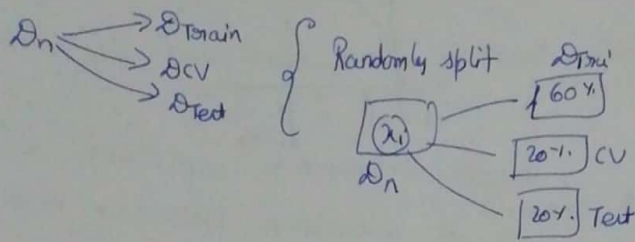 Dn
DTrain
DCV
DTest
Randomly split
60%
xi
Dn
20% CV
20% Test